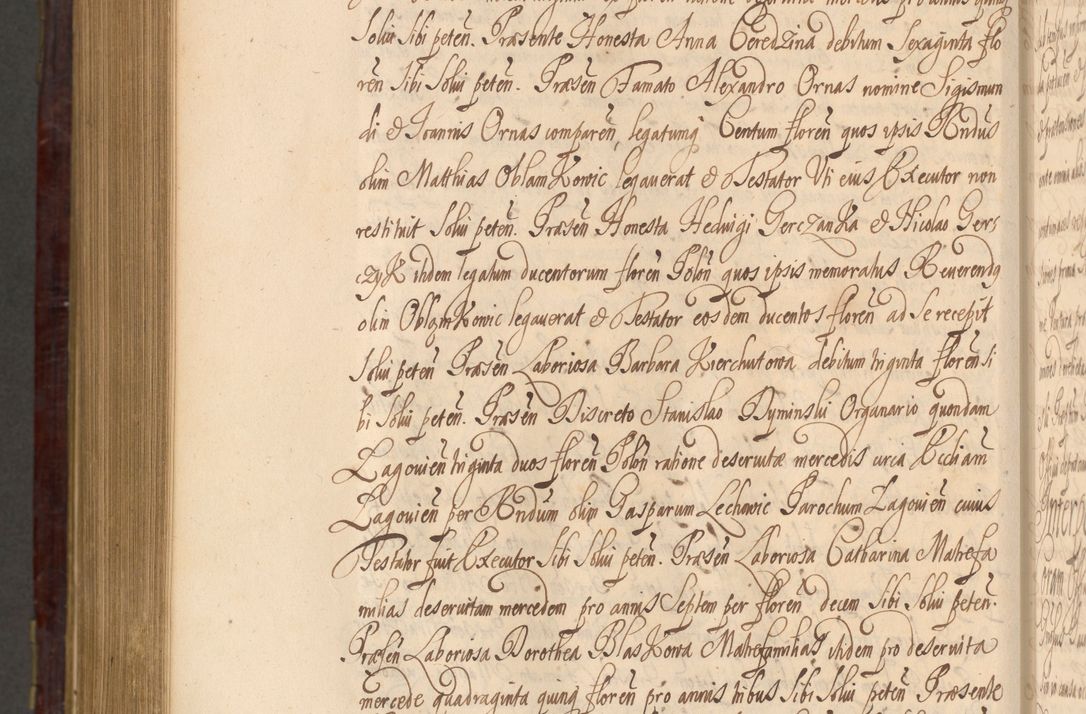 Solui Sibi peten̄. Præsente Honesta Anna Ceredzina debitum Sexaginta flo
rēn Sibi Solui peten̄. Præsen̄ Famato Alexandro Ornas nomine Sigismun
di & Joannis Ornas comparen̄, legatumq Centum floren̄ quos ipsis Rndus
olim Matthias Oblamkowic legauerat & Testator Uti eius Executor non
restituit Solui peten̄. Præsen̄ Honesta Heduigi Gerczanka & Nicolao Gers
czyk itidem legatum ducentorum floren̄ Polon̄ quos ipsis memoratus Reverendq
olim Oblamkowic legauerat & Testator eosdem ducentos floren̄ ad se recepit
Solui peten̄ Præsen̄ Laboriosa Barbara Kierchutowa debitum triginta floren̄ Si
bi Solui peten̄. Præsen̄ Discreto Stanislao Dyminski Organario quondam
Lagouien̄ triginta duos floren̄ Polon̄ ratione deseruitæ mercedis circa Eccliam
Lagouien̄ per Rndum olim Gasparum Lechowic Parochum Lagouien̄ cuius
Testator fuit Executor Sibi Solui peten̄. Præsen̄ Laboriosa Catharina Matrefa
milias deseruitam mercedem pro annis Septem per floren̄ decem Sibi Solui peten̄.
Præsen̄ Laboriosa Dorothea Blaskowa Matrefamilias itidem pro deseruita
mercede quadraginta quinq floren̄ pro annis tribus Sibi Solui peten̄ Præsente